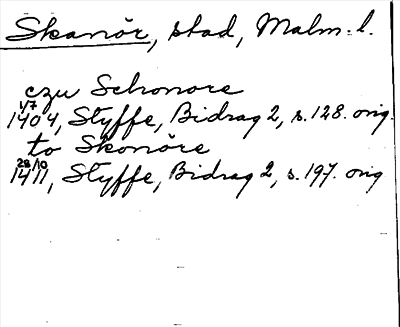 Skanör, stad, Malm. l.
czu Schonore
1/7 1404, Styffe, Bidrag 2, s. 128. orig.
to Skonöre
28/10 1411, Styffe, Bidrag 2, s. 197. orig